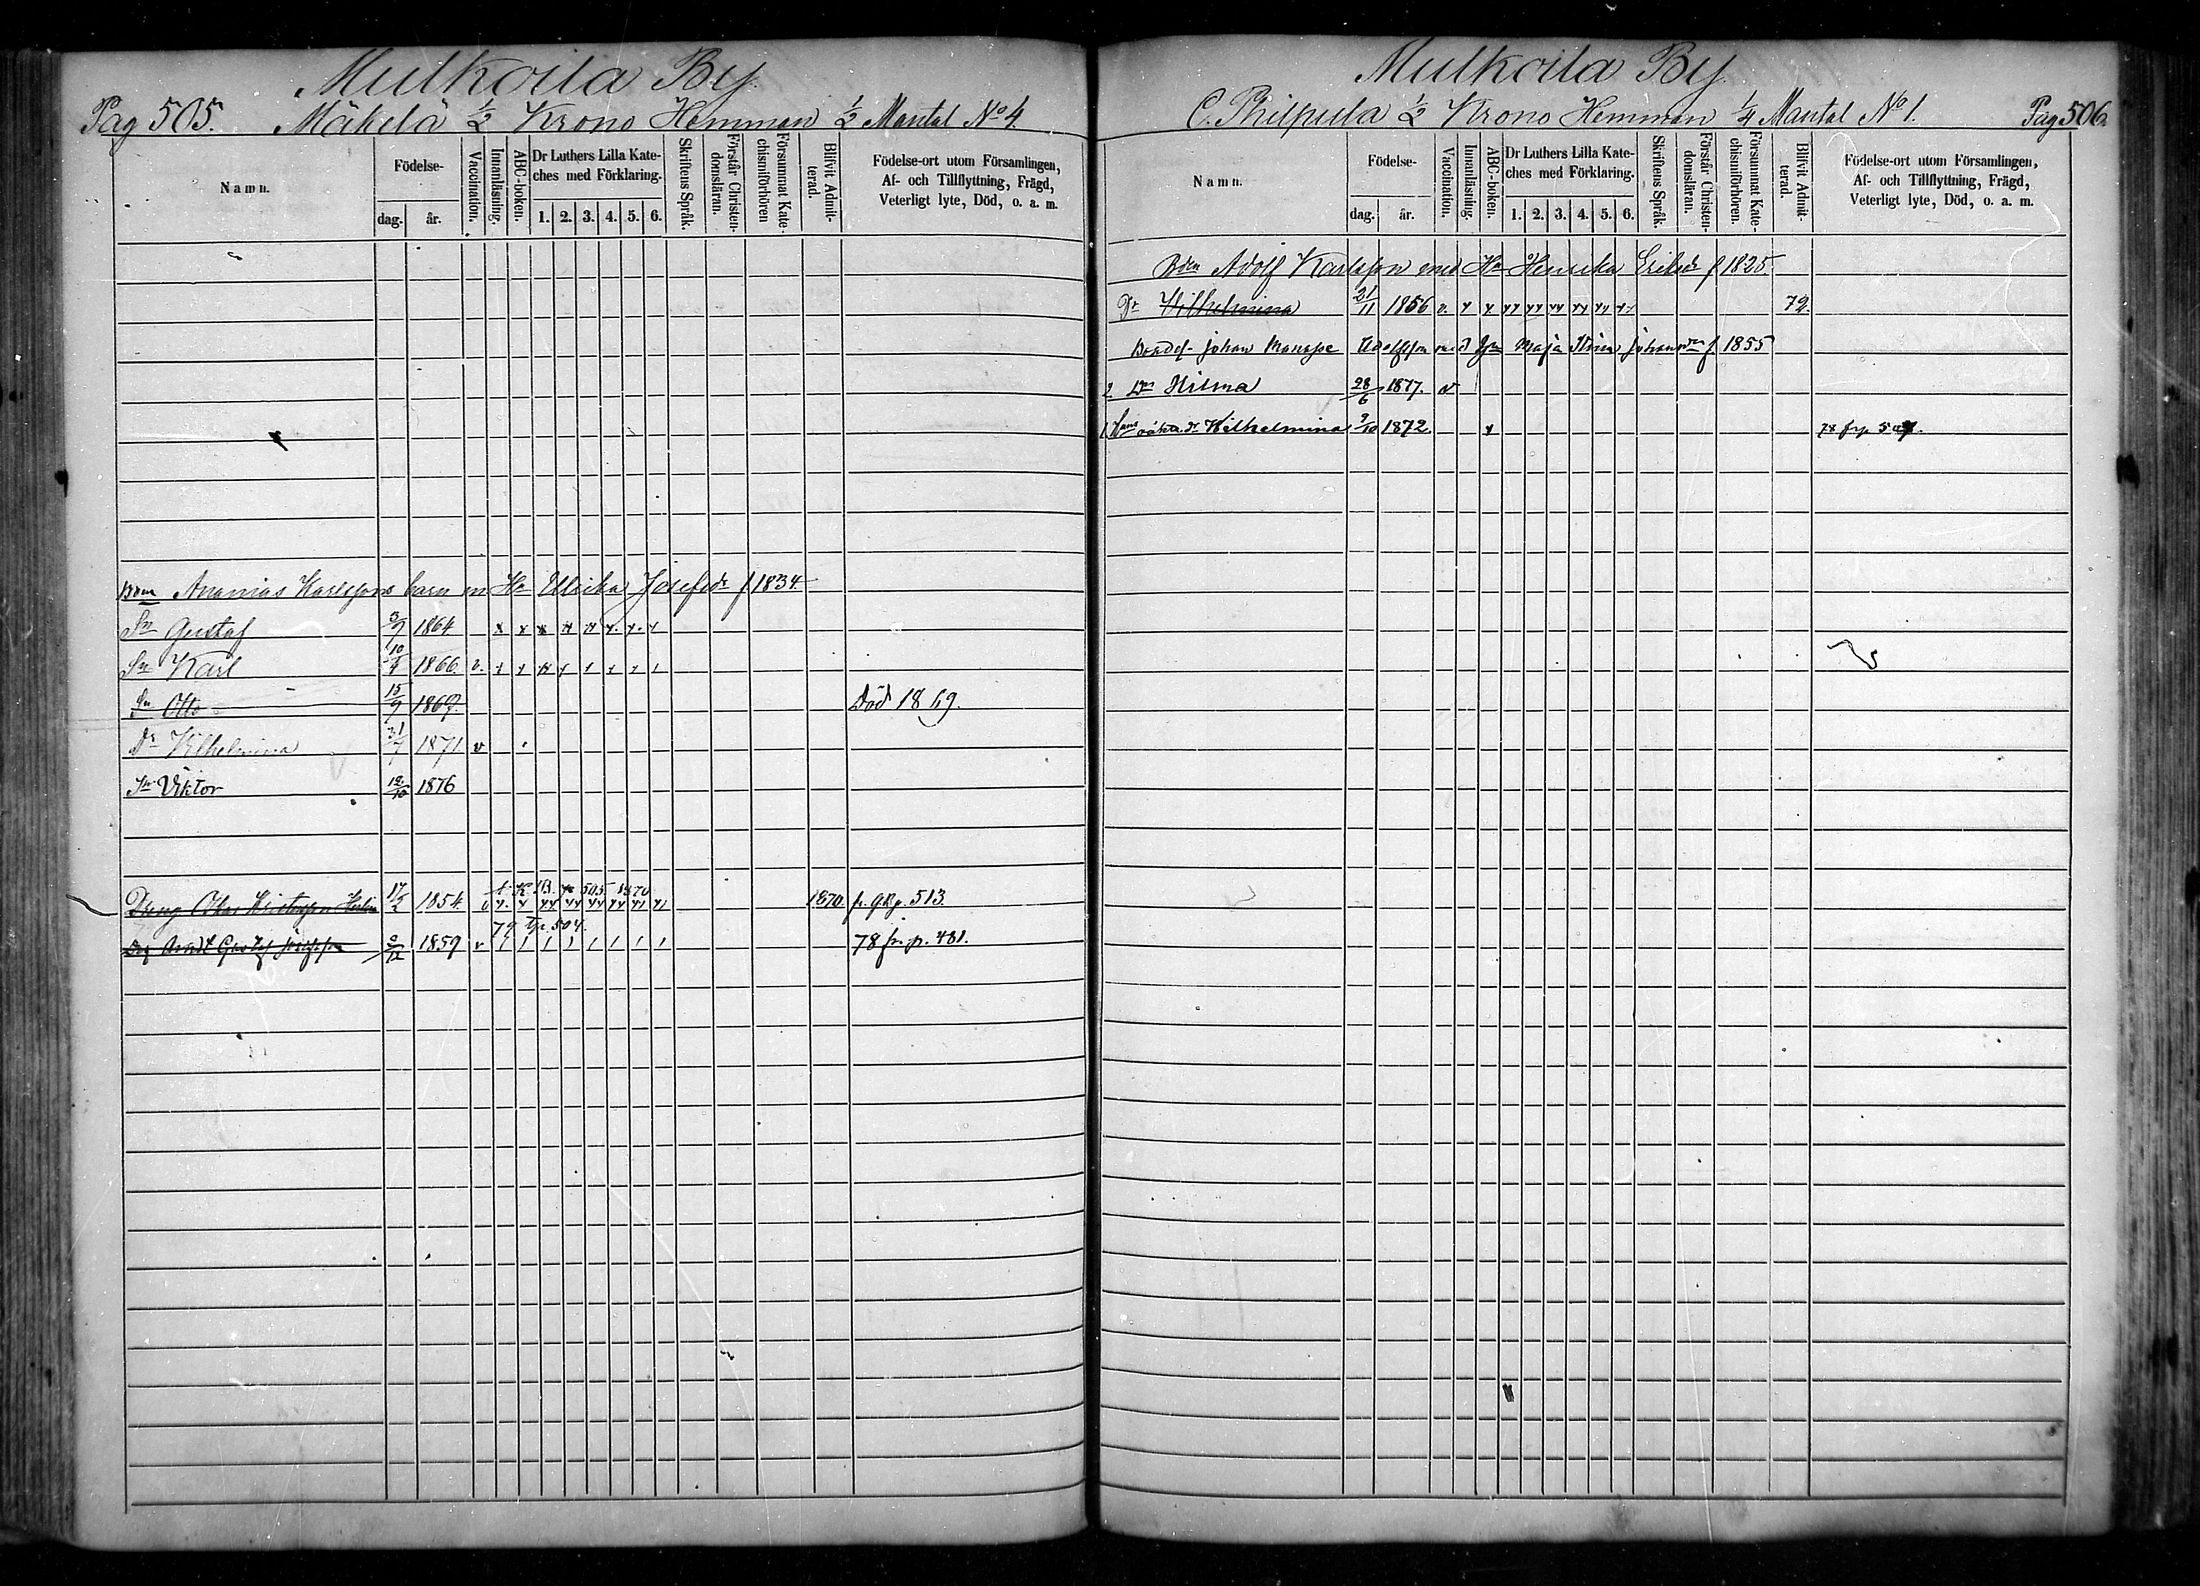 Mulkoila By.
Pag 505. Mäkelä ½ Krono Hemman ½ Mantal No 4.
Namn.
Födelse-
dag. år.
Vaccination.
Innanläsning.
ABC-boken.
Dr Luthers Lilla Kate-
ches med Förklaring.
1. 2. 3. 4. 5. 6.
Skriftens Språk.
Förstår Christen-
domsläran.
Försummat Kate-
chismiförhören
Blifvit Admit-
terad.
Födelse-ort utom Församlingen,
Af- och Tillflyttning, Frägd,
Veterligt lyte, Död, o. a. m.
Bdm Ananias Karlssons barn m Ha Ulrika Josefsdr f 1834.
Sn Gustaf 3/9 1864 x x x x x x. x. x
Sn Karl 10/4 1866. v. x x x x x x x x
Sn Otto 15/9 1867. Död 1869.
Dr Vilhelmina 31/7 1871 v
Sn Viktor 12/10 1876
505 1870
Dreng 17/2 1854. 1870. f. gkp. 513.
79 tp. 504.
Gustaf 2/12 1859 v 78 fr. p. 481.
Mulkoila By.
C. Philpula ½ Krono Hemman ¼ Mantal No 1. Pag 506.
Namn.
Födelse-
dag. år.
Vaccination.
Innanläsning.
ABC-boken.
Dr Luthers Lilla Kate-
ches med Förklaring.
1. 2. 3. 4. 5. 6.
Skriftens Språk.
Förstår Christen-
domsläran.
Försummat Kate-
chismiförhören.
Blifvit Admit-
terad.
Födelse-ort utom Församlingen,
Af- och Tillflyttning, Frägd,
Veterligt lyte, Död, o. a. m.
Bdm Adolf Karlsson med Ha Henrika Eriksdr f 1825
Dr Wilhelmina 21/11 1856 v. x x xx xx xx xx xx xx 72.
Bondes. Johan Manasse Adolfsson med Maja Stina Johansdr f. 1855
2. Dr Hilma 28/6 1877. v
1. Hans oäkta dr Wilhelmina 9/10 1872. x 78 frp 507.